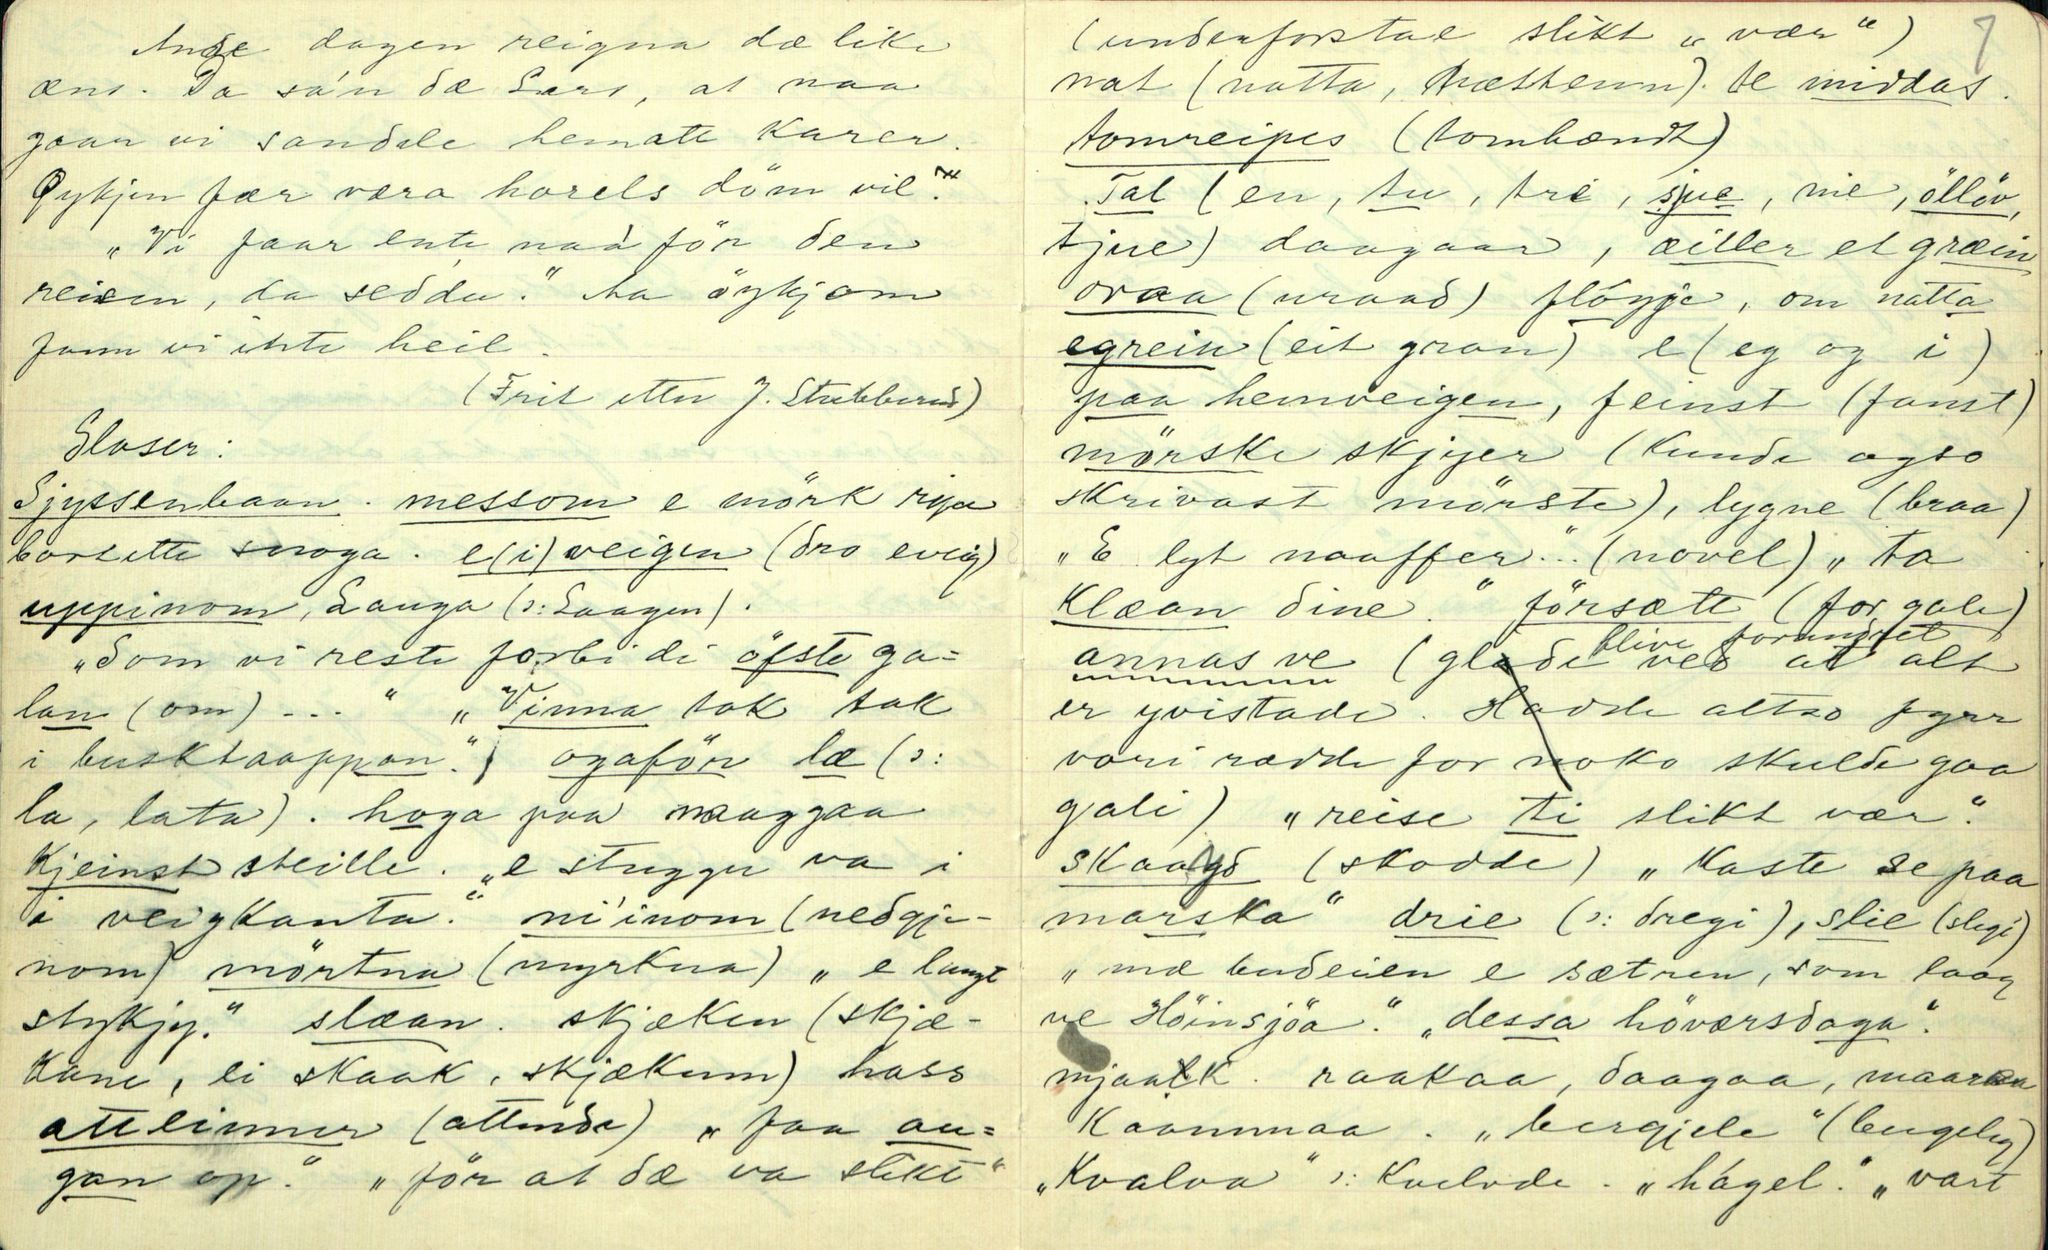 Andre dagen reigna dæ like
æns. Da sa'n dæ Lars, at naa
gaar vi sandele hematt Karer.
Øykjen fær væra horels döm vil."
"Vi faar ente naa för den
reisen, da seddu." Aa öykjom
fann vi ikte heil.
(Frit etter J. Stubberud)
Gloser:
Sjyssenbaan. messom e mörk rya
bortette snoga. e(i) veigen (dro eveig)
uppinom, Lauga (ɔ: Laagen).
"Som vi reste forbi di öfste ga=
lan (om) --- " "Vinna tok tak
i busktaappan." ogaför læ (ɔ:
la, lata). hoga paa naaggaa
Kjeinst steille. "e stuggu va i
i veigkanta." ni'inom (nedgje-
nom) mörtna (myrkna) "e langt
stykjy." slæan. skjæken (skjæ-
kane, ei skaak, skjækum) hass
atteinner (attende) "faa au=
gan op." "för at dæ va slikt"
7
(underforstae slikt "vær")
nat (natta, nættenn). te middas.
tomreipes (tomhændt)
Tal (en, tu, tri, sjue, nie, ölløv,
tjue) daagaar, æiller et græin
oraa (uraad) flöygje, om natta
egrein (eit gran) e (eg og i)
paa hemveigen, feinst (fanst)
mörske skjyer (kunde ogso
skrivast mörste), lygne (braa)
"E lyt naaffer"... (novel) "ta
Klæan dine." försætt (for gale)
blive forundret
annas ve (glade ved at alt
er yvistade. Hadde altso fyrr
vori rædde for noko skulde gaa
gali) "reise ti slikt vær."
skaadd (skodde) "Kaste se paa
marska" drie (ɔ: dregi), slie (slegi)
"mæ budeien e sætren, som laag
ve Höinsjöa." "dessa höværsdaga".
mjaalk. raakaa, daagaa,
Kaammaa. "bergjele" (bergeleg)
"Kvalva" ɔ: Kvelvde. "hágel." "vart